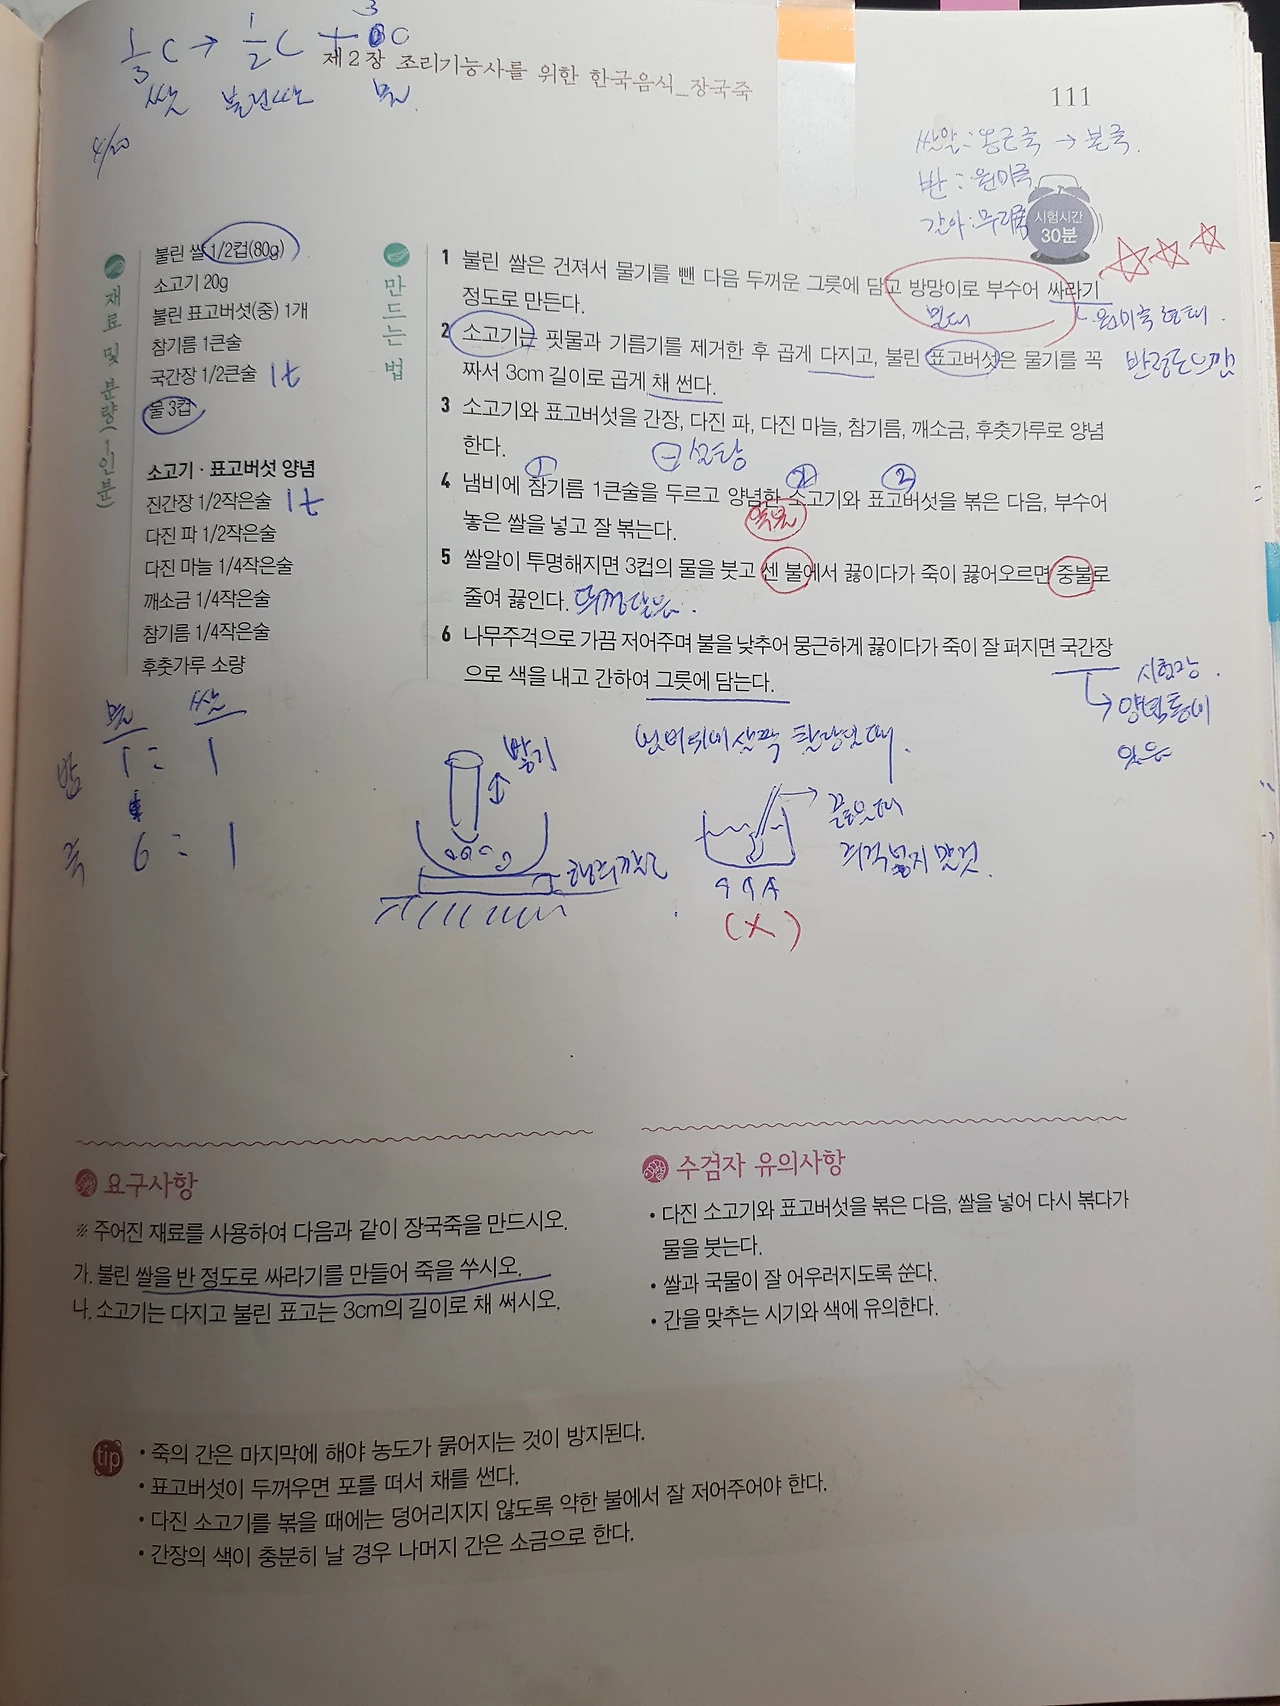 1/3 C → 1/2 C + 3C
쌀 불린쌀 물
제2장 조리기능사를 위한 한국음식_장국죽
111
4/20
쌀알 : 옹근죽 →
반 : 원미죽
갈아 : 무리죽
시험시간
30분
재료 및 분량(1인분)
불린 쌀 1/2컵(80g)
소고기 20g
불린 표고버섯(중) 1개
참기름 1큰술
국간장 1/2큰술 1t
물 3컵
소고기 · 표고버섯 양념
진간장 1/2작은술 1t
다진 파 1/2작은술
다진 마늘 1/4작은술
깨소금 1/4작은술
참기름 1/4작은술
후춧가루 소량
만드는 법
1 불린 쌀은 건져서 물기를 뺀 다음 두꺼운 그릇에 담고 방망이로 부수어 싸라기
정도로 만든다.
밀대
원미죽 형태.
2 소고기는 핏물과 기름기를 제거한 후 곱게 다지고, 불린 표고버섯은 물기를 꼭
반정도 느낌
짜서 3cm 길이로 곱게 채 썬다.
3 소고기와 표고버섯을 간장, 다진 파, 다진 마늘, 참기름, 깨소금, 후춧가루로 양념
한다.
⊖ 설탕
① ② ③
4 냄비에 참기름 1큰술을 두르고 양념한 소고기와 표고버섯을 볶은 다음, 부수어
약불
놓은 쌀을 넣고 잘 볶는다.
5 쌀알이 투명해지면 3컵의 물을 붓고 센 불에서 끓이다가 죽이 끓어오르면 중불로
줄여 끓인다. 뚜껑닫음.
6 나무주걱으로 가끔 저어주며 불을 낮추어 뭉근하게 끓이다가 죽이 잘 퍼지면 국간장
으로 색을 내고 간하여 그릇에 담는다.
시험장.
양념통에
있음
물 쌀
밥 1 : 1
죽 6 : 1
빻기
끓을때
주걱넣지 말것.
(X)
요구사항
※ 주어진 재료를 사용하여 다음과 같이 장국죽을 만드시오.
가. 불린 쌀을 반 정도로 싸라기를 만들어 죽을 쑤시오.
나. 소고기는 다지고 불린 표고는 3cm의 길이로 채 써시오.
수검자 유의사항
• 다진 소고기와 표고버섯을 볶은 다음, 쌀을 넣어 다시 볶다가
물을 붓는다.
• 쌀과 국물이 잘 어우러지도록 쑨다.
• 간을 맞추는 시기와 색에 유의한다.
tip
• 죽의 간은 마지막에 해야 농도가 묽어지는 것이 방지된다.
• 표고버섯이 두꺼우면 포를 떠서 채를 썬다.
• 다진 소고기를 볶을 때에는 덩어리지지 않도록 약한 불에서 잘 저어주어야 한다.
• 간장의 색이 충분히 날 경우 나머지 간은 소금으로 한다.